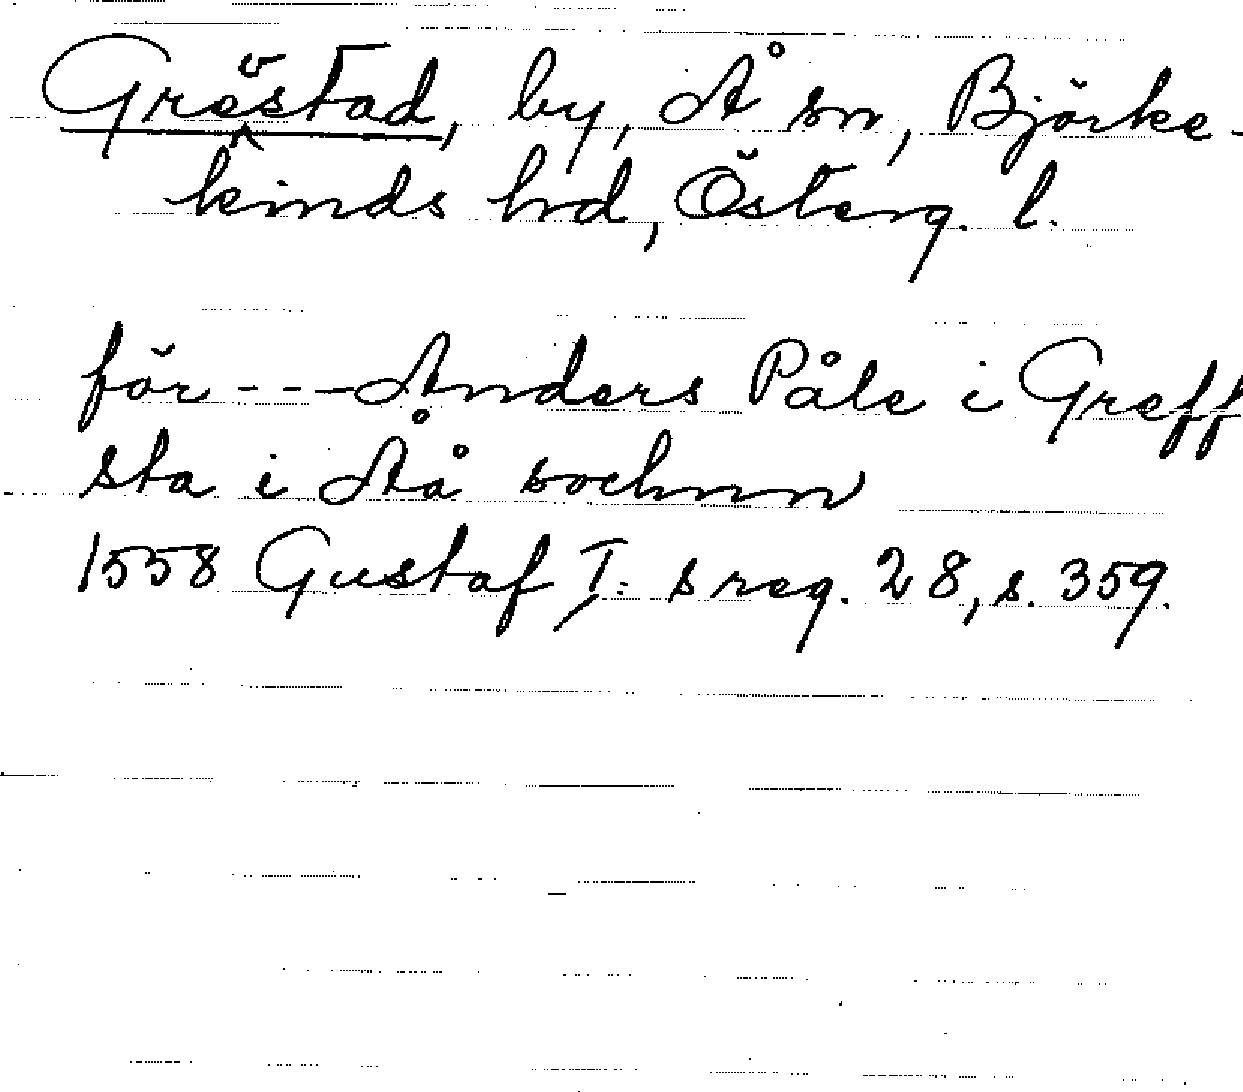 Grevstad, by, Å sn, Björke-
kinds hrd, Österg. l.
för --- Anders Påle i Greff
sta i Åå sochnn
1558 Gustaf I: s reg. 28, s. 359.